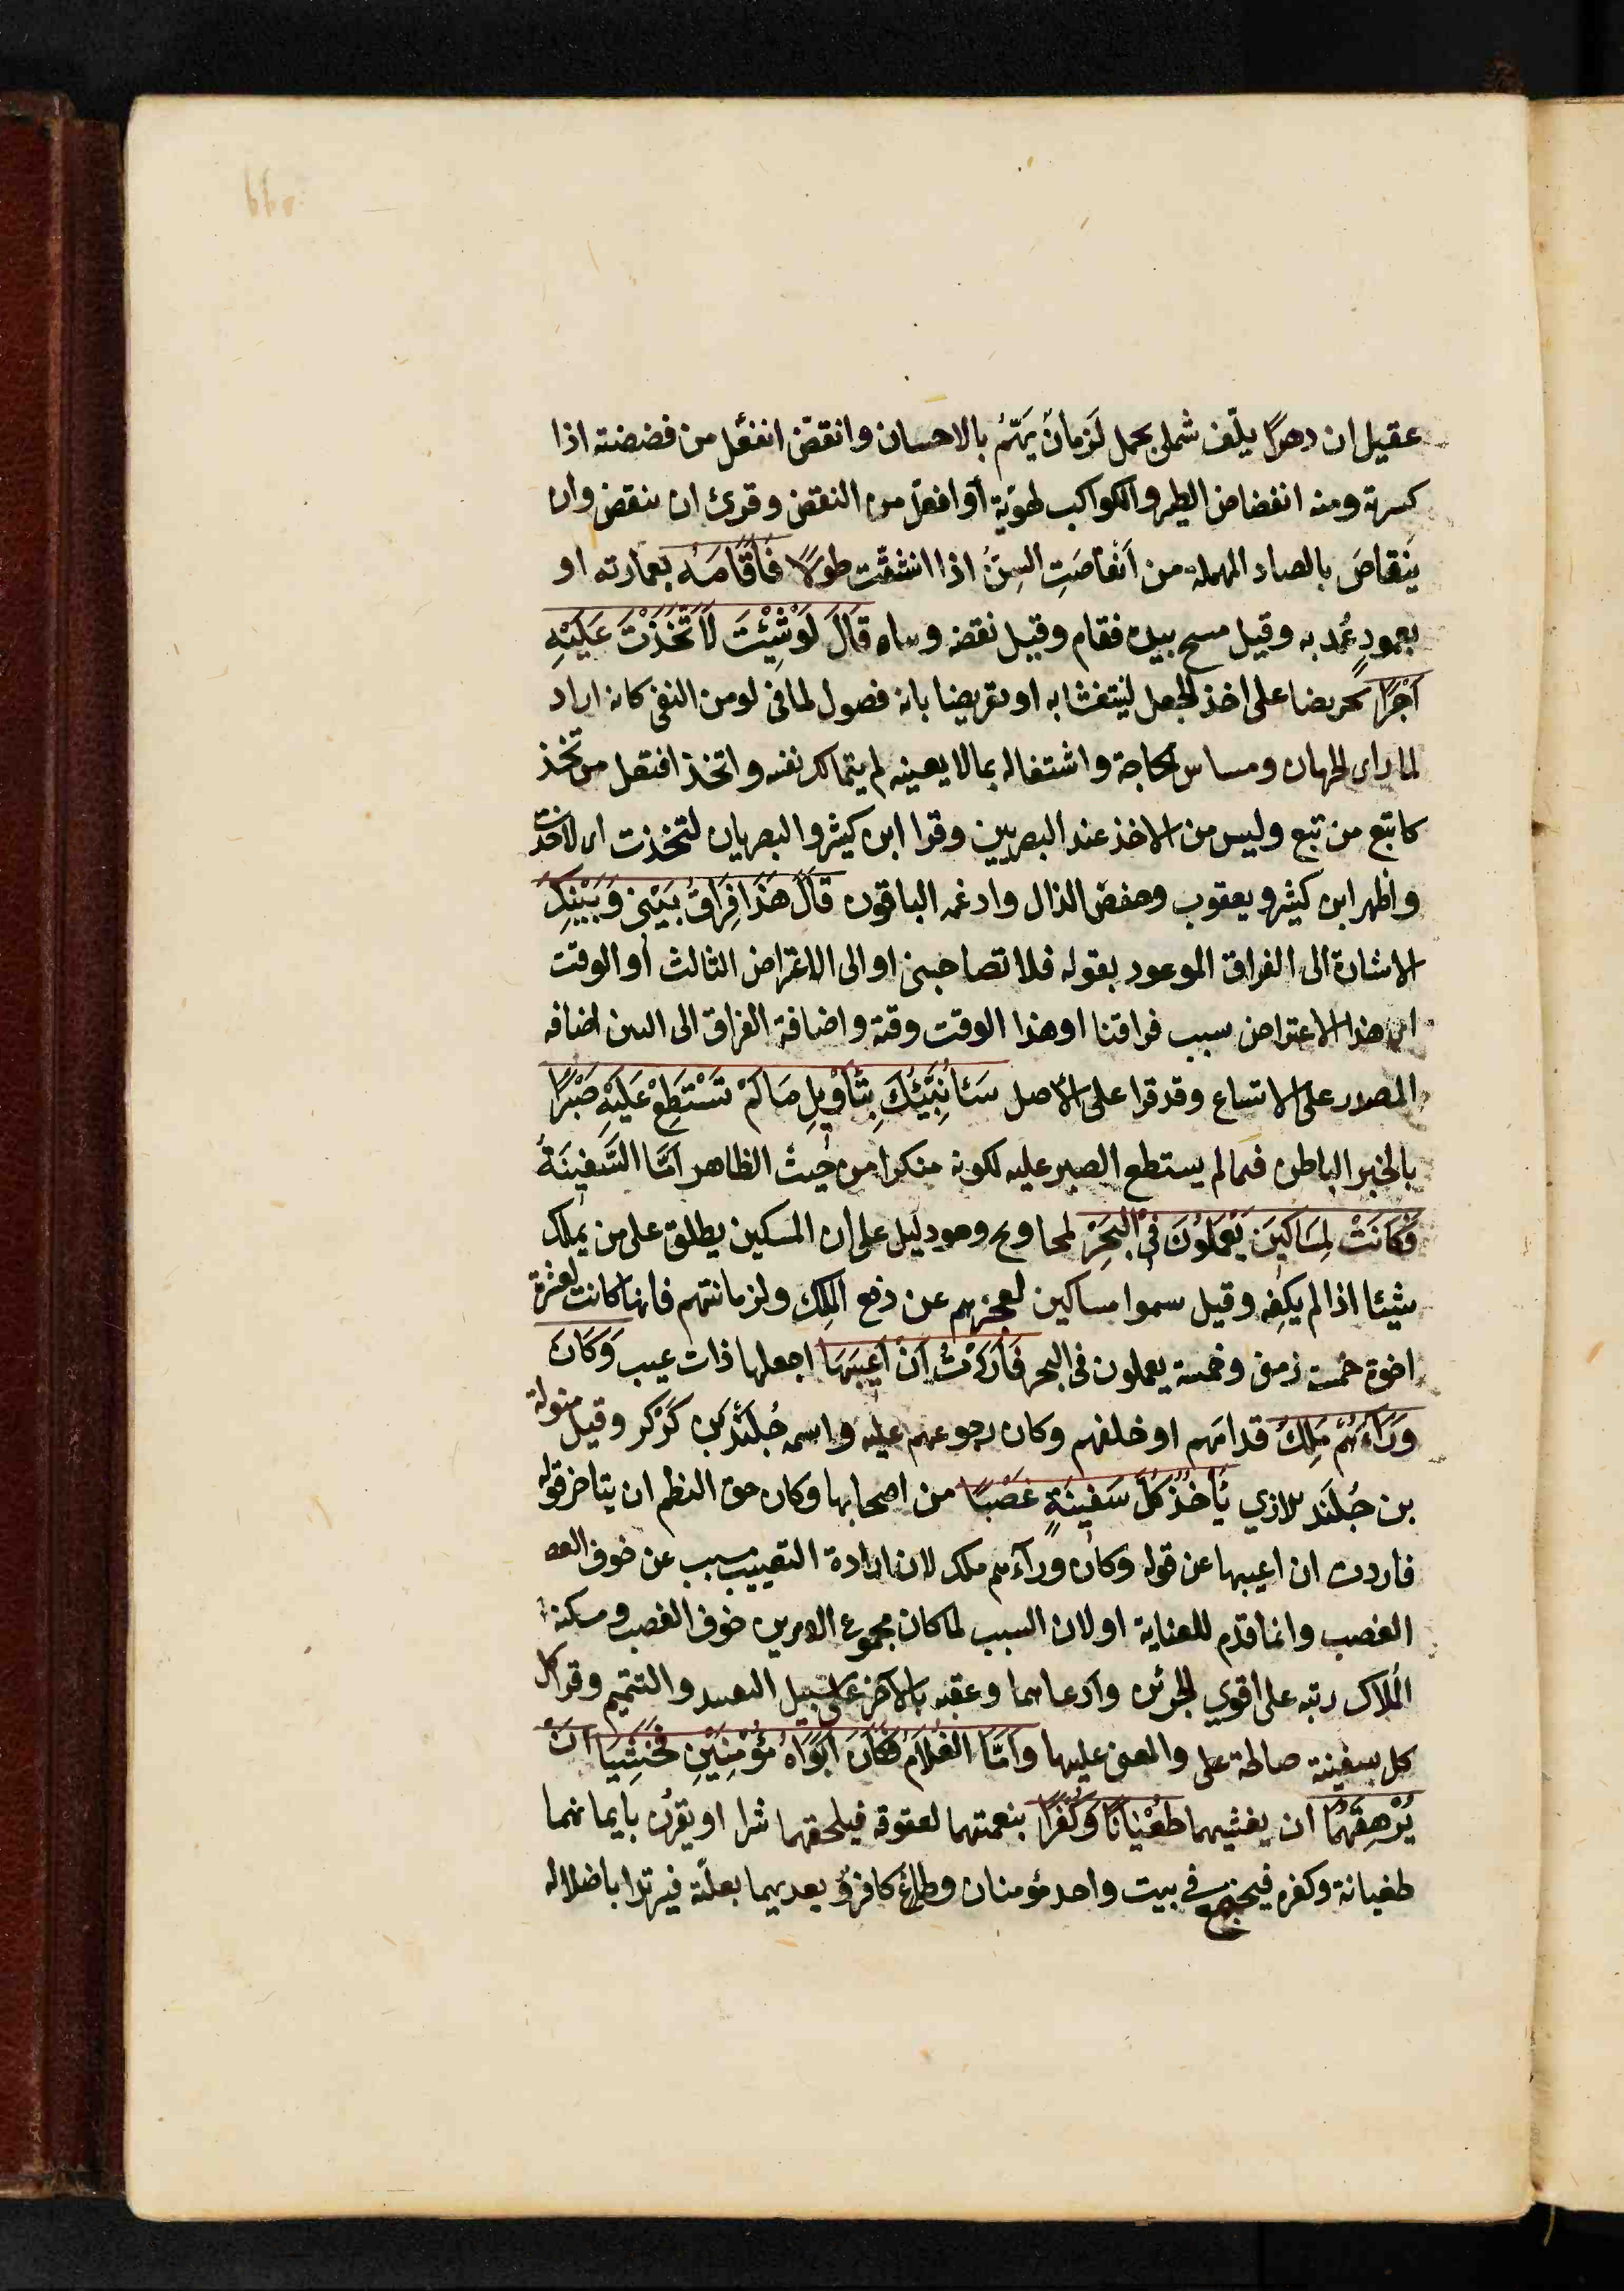 عقيل ان دهرًا يلّف شملى بجمل لَزمانٌ يَهّمُ بالاحسان وانقضّ انفعّل من فضضته اذا
كسرته ومنه انفضاض الطير والكواكب لهوّيه أو افعلّ من النقض وقرئ ان ينقض وان
يَنقاصَ بالصاد المهملة من اَنقاصَتِ السِنُّ اذا انشقّت طولًا فَاَقَامَهُ بعمارته او
بعمودٍ عُمد به وقيل مسح بيده فقام وقيل نقضه وبناه قَالَ لَوْشِئْتَ لَاتَّخَذْتَ عَلَيْهِ
اَجْرًا تحريضا على اخذ الجعل لينتعشا به او تعريضا بانه فضول لما فى لو من النفى كانه اراد
لما راى الحرمان ومساس الحاجة واشتغاله بمالا يعينه لم يتمالك نفسه واتخذ افتعل من تخذ
كاتبع من تبع وليس من الاخذ عند البصريين وقرا ابن كيثر والبصريان لتخذت اى لاخذت
واظهر ابن كيثر ويعقوب وحفص الذال وادغمه الباقون قَالَ هَذَا فِرَاقُ بَيْنِى وَبَيْنِكَ
الاشارة الى الفراق الموعود بقوله فلا تصاحبنى او الى الاعتراض الثالث أو الوقت
اى هذا الاعتراض سبب فراقنا او هذا الوقت وقته واضافة الفراق الى البين اضافه
المصدر على الاتساع وقد قرا على الأصل سَئُانَبِّئُكَ بِتَأْوِيلِ مَالَمْ تَسْتَطِعْ عَلَيْهِ صَبْرًا
بالخبر الباطن فيما لم يستطع الصبر عليه لكونه منكرا من حيث الظاهر اَمَّا السَّفِينَةُ
فَكَانَتْ لِمَسَاكِينَ يَعْمَلُونَ فِى الْبَحْرِ لمحاويج وهو دليل على ان المسكين يطلق على من يملك
شيئا اذا لم يكفه وقيل سموا مساكين لعجزهم عن دفع الملِكِ ولزمانتهم فانها كانت لعشرة
اخوة خمسة زمنى وخمسة يعملون فى البحر فَاَرَدْتُ اَنْ اَعِيبَهَا اجعلها ذات عيب وَكَانَ
وَرَاءَهُمْ مَلِكٌ قدامَهم او خلفهم وكان رجوعهم عليه واسمه جُلَنْدَى بن كَرْكَر وقيل منوله
بن جُلَنَد الازدي يَأْخُذُ كُلَّ سَفِينَةٍ غَصْبًا من اصحابها وكان حق النظم ان يتاخر قوله
فاردت ان اعيبها عن قوله وكان وراءهم ملك لان ارادة التعييب مسبب عن خوف الغصـ
الغصب وانما قدم للعناية او لان السبب لما كان مجموع الامرين خوف الغصب ومسكنة
الملاك رتبه على اقوي الجزئين وادعاهما وعقبه بالآخر على سبيل التقييد والتتميم وقرا كل
كل سفينة صالحة على والمعنى عليها وَاَمَّا الغُلَامُ فَكَانَ اَبَوَاهُ مُؤْمِنَيْنِ فَخَشِينَا اَنْ
يُرْهِقَهُمَا ان يغشيهما طُغْيَانًا وَكُفْرًا بنعمتهما لعقوقه فيلحقهما شرا او يقرن بايمانهما
طغيانه وكفره فيجتمع في بيت واحد مؤمنان وطاغ كافر أو يعديهما بعلّته فيرتدا باضلاله